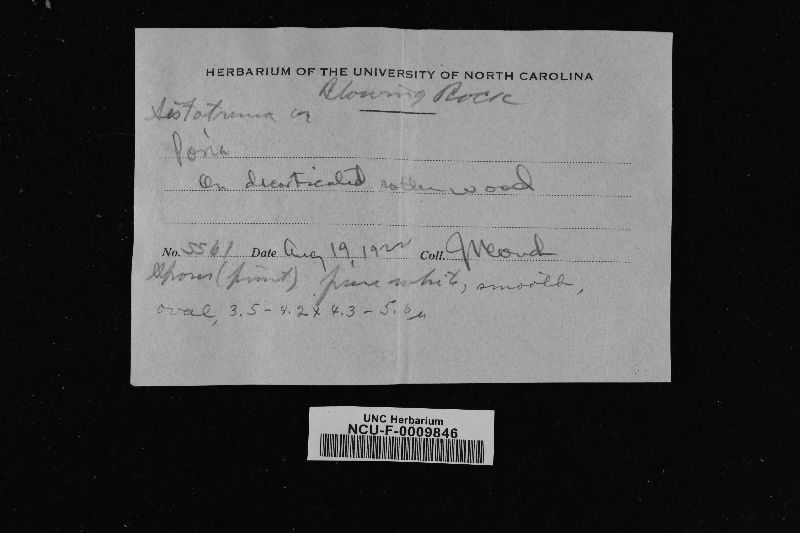 HERBARIUM OF THE UNIVERSITY OF NORTH CAROLINA
Blowing Rock
Sistotrema or
Poria
On decorticated rotten wood
No. 5561 Date Aug 19, 1922 Coll.
Spores (print) pure white, smooth,
oval, 3.5 - 4.2 x 4.3 - 5.6 µ
UNC Herbarium
NCU-F-0009846